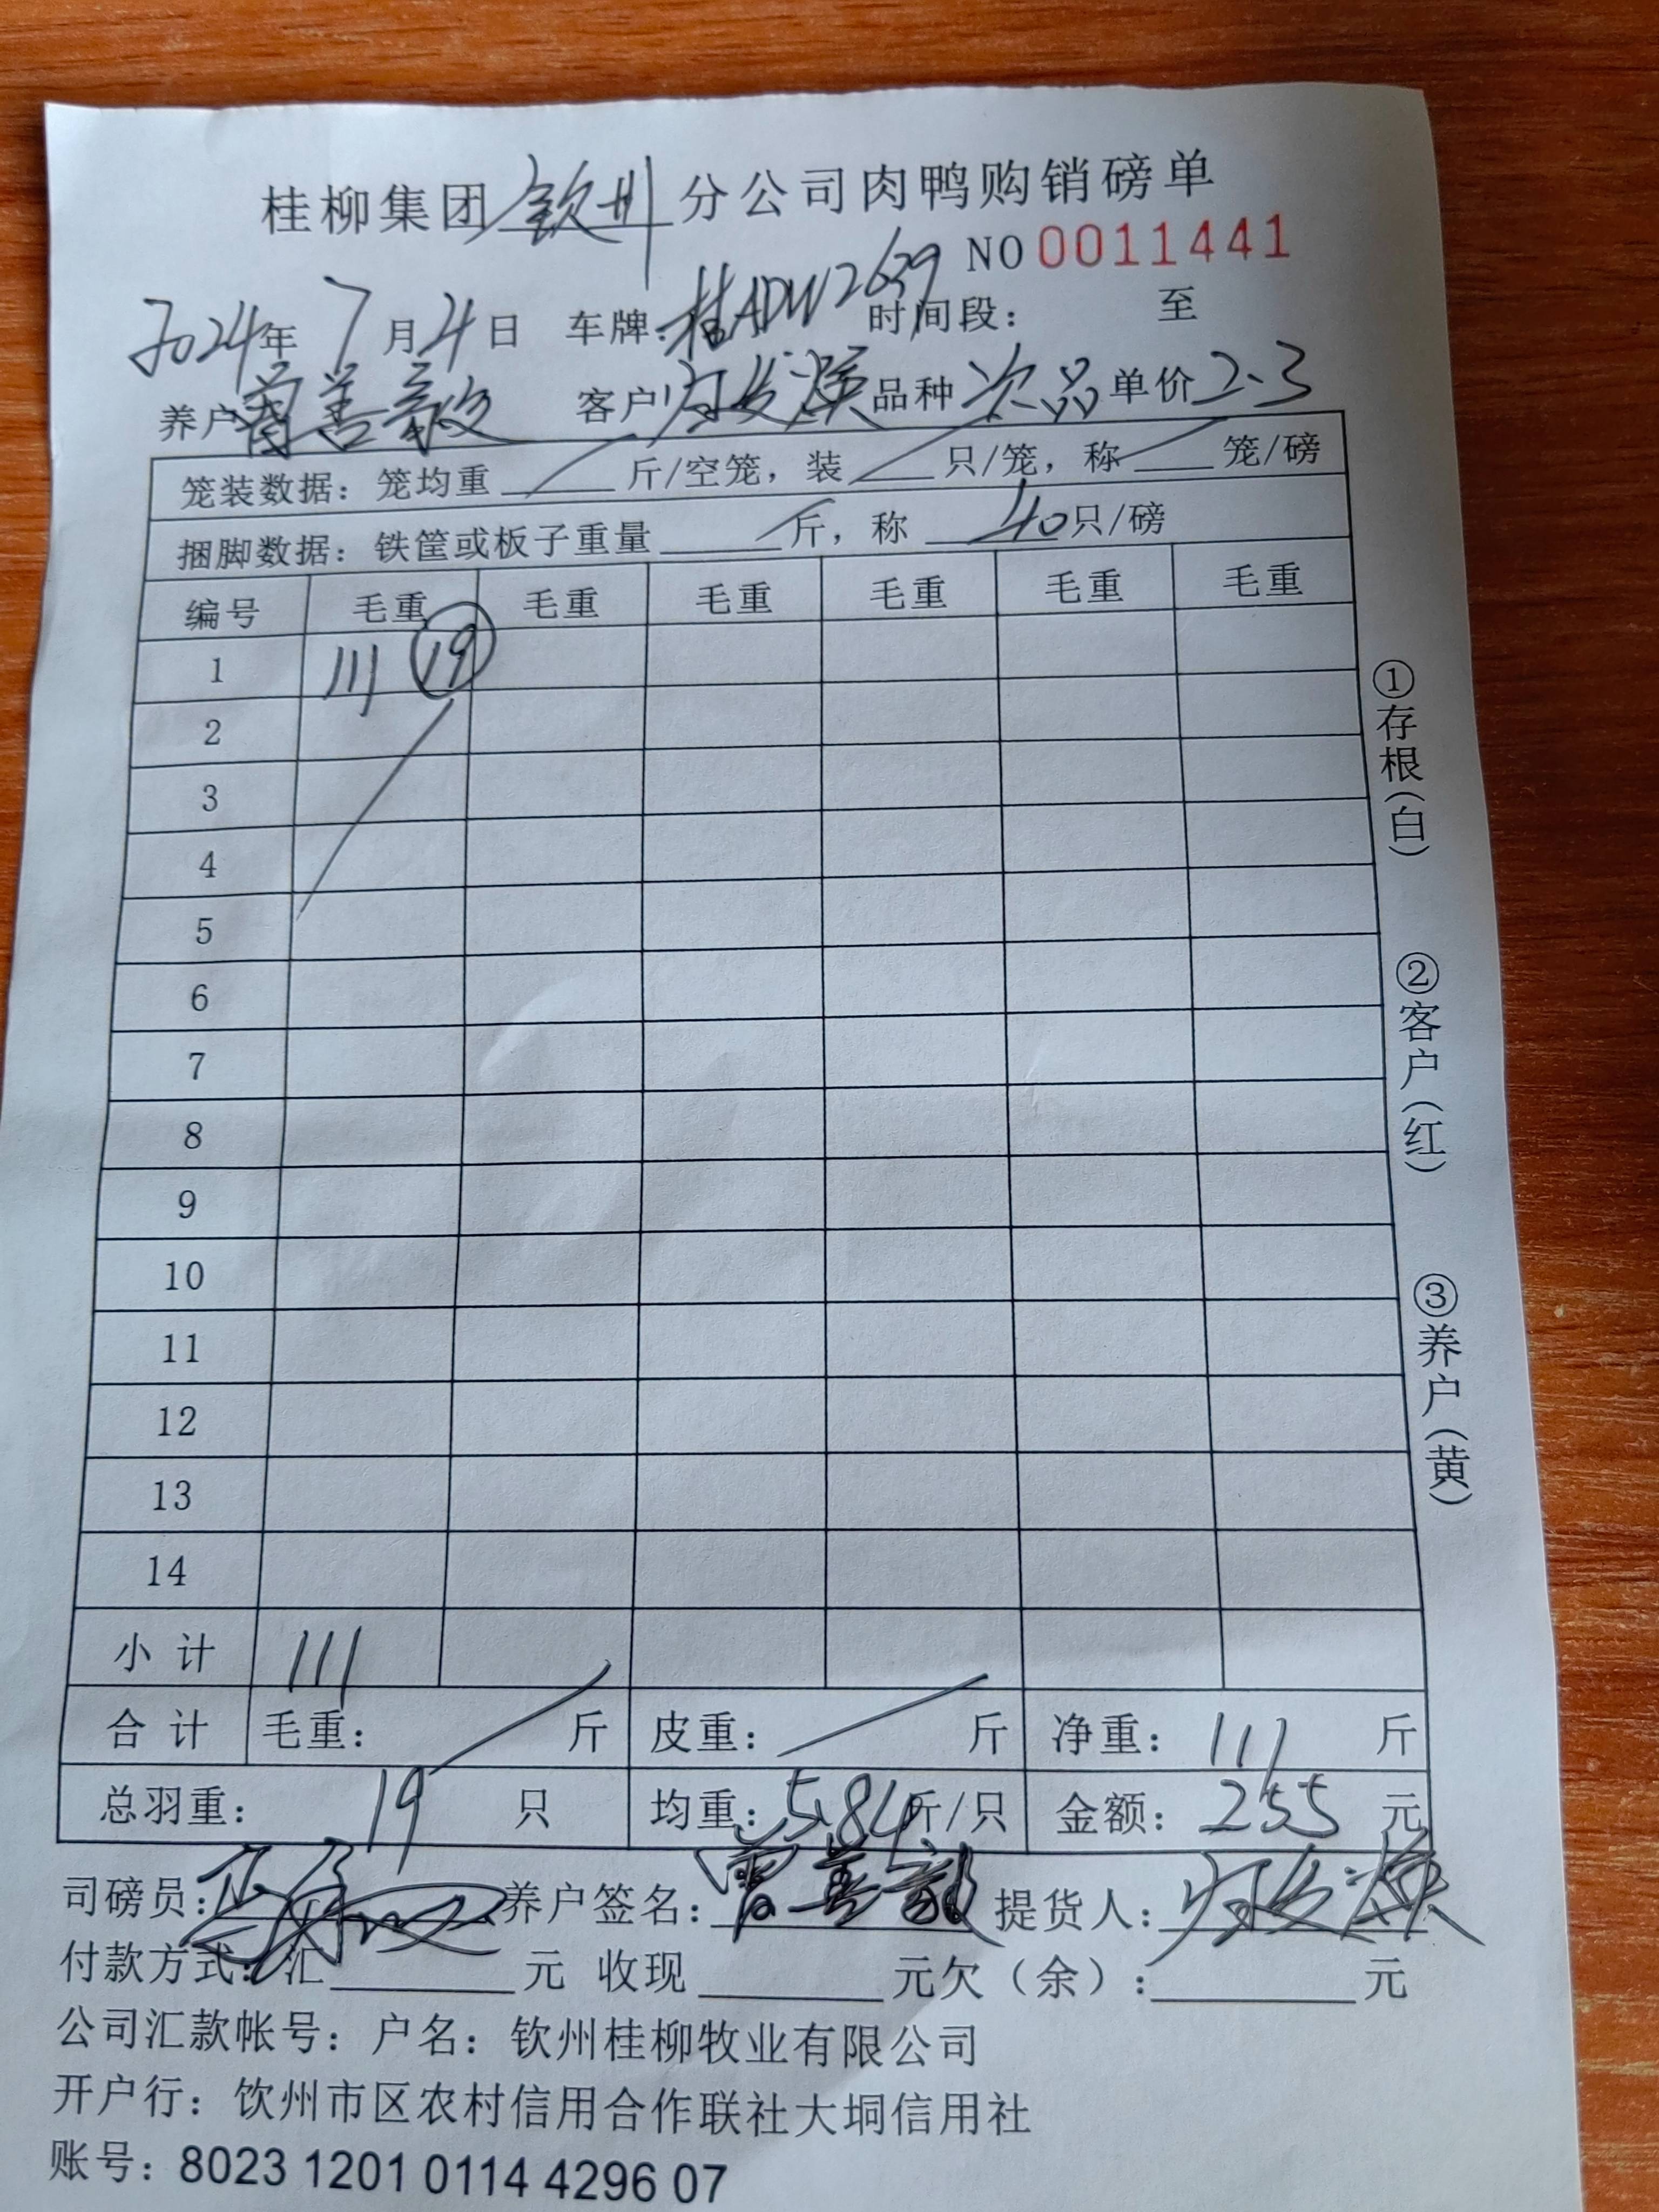 桂柳集团钦州分公司肉鸭购销磅单
NO 0011441
2024年7月4日 车牌:桂ADW2639 时间段: 至
养户曾善敭 客户 品种次品单价2.3
笼装数据:笼均重 斤/空笼,装 只/笼,称 笼/磅
捆脚数据:铁筐或板子重量 斤,称 40只/磅
编号 毛重 毛重 毛重 毛重 毛重 毛重
1 111 19
2
3
4
5
6
7
8
9
10
11
12
13
14
小计 111
合计 毛重: 斤 皮重: 斤 净重:111斤
总羽重:19只 均重:5.84斤/只 金额:255元
司磅员: 养户签名:曾善 提货人:
付款方式:汇 元 收现 元欠(余): 元
公司汇款帐号:户名:钦州桂柳牧业有限公司
开户行:钦州市区农村信用合作联社大垌信用社
账号:8023 1201 0114 4296 07
①存根(白)
②客户(红)
③养户(黄)